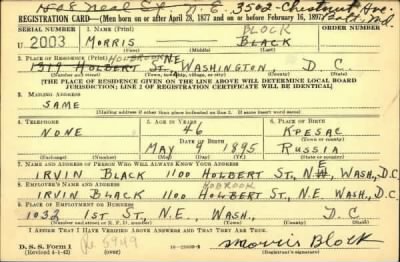 1508 Neal St. N.E. 3502-Chestnut Ave.
Balt. Md
REGISTRATION CARD—(Men born on or after April 28, 1877 and on or before February 16, 1897)
SERIAL NUMBER 1. NAME (Print) ORDER NUMBER
BLOCK
U 2003 MORRIS BLACK
(First) (Middle) (Last)
2. PLACE OF RESIDENCE (Print) HOLBROOK N.E.
1319 HOLBERT ST., WASHINGTON, D C
(Number and street) (Town, township, village, or city) (County) (State)
[THE PLACE OF RESIDENCE GIVEN ON THE LINE ABOVE WILL DETERMINE LOCAL BOARD
JURISDICTION; LINE 2 OF REGISTRATION CERTIFICATE WILL BE IDENTICAL]
3. MAILING ADDRESS
SAME
[Mailing address if other than place indicated on line 2. If same insert word same]
4. TELEPHONE 5. AGE IN YEARS 6. PLACE OF BIRTH
NONE 46 KPESAC
DATE OF BIRTH (Town or county)
MAY 9 1895 RUSSIA
(Exchange) (Number) (Mo.) (Day) (Yr.) (State or country)
7. NAME AND ADDRESS OF PERSON WHO WILL ALWAYS KNOW YOUR ADDRESS
E
IRVIN BLACK 1100 HOLBERT ST, N.W., WASH, D.C.
8. EMPLOYER'S NAME AND ADDRESS
HOBROOK
IRVIN BLACK 1100 HOLBERT ST, N.E. WASH, D.C.
9. PLACE OF EMPLOYMENT OR BUSINESS
1032 1ST ST, N.E., WASH., D C
(Number and street or R. F. D. number) (Town) (County) (State)
I AFFIRM THAT I HAVE VERIFIED ABOVE ANSWERS AND THAT THEY ARE TRUE.
D. S. S. Form 1
(Revised 4-1-42) (over)
5949
Morris Block
(Registrant's signature)